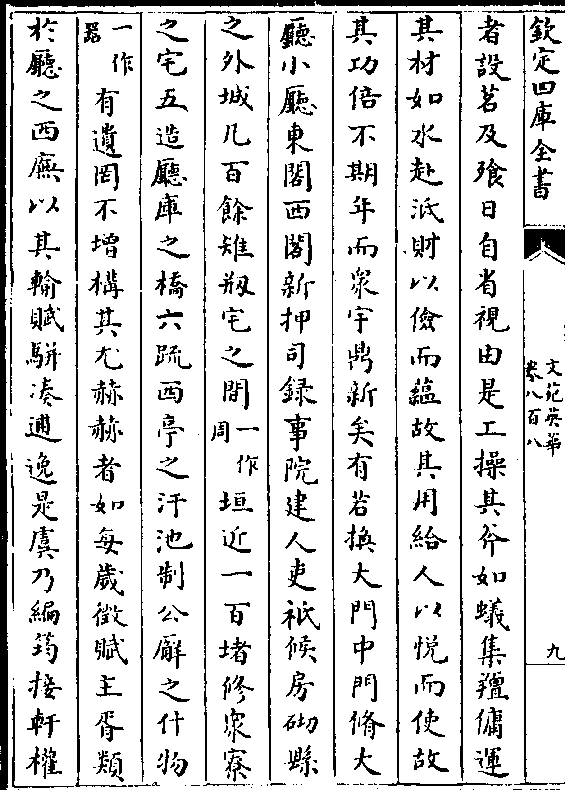 欽定四庫全書
文苑英華
卷八百八
九
者設茗及飱日自省視由是工操其斧如蟻集羶傭運
其材如水赴泜財以儉而藴故其用給人以悅而使故
其功倍不期年而衆宇鼎新矣有若換大門中門脩大
廳小廳東閤西閤新押司録事院建人吏祗候房砌縣
之外城凡百餘雉剏宅之間一作周垣近一百堵修衆寮
之宅五造廳庫之橋六䟽西亭之汙池制公廨之什物
一作器有遺罔不增構其尤赫赫者如每歲徵賦主胥類
於廳之西廡以其輸賦駢湊逋逸是虞乃編筠接軒權